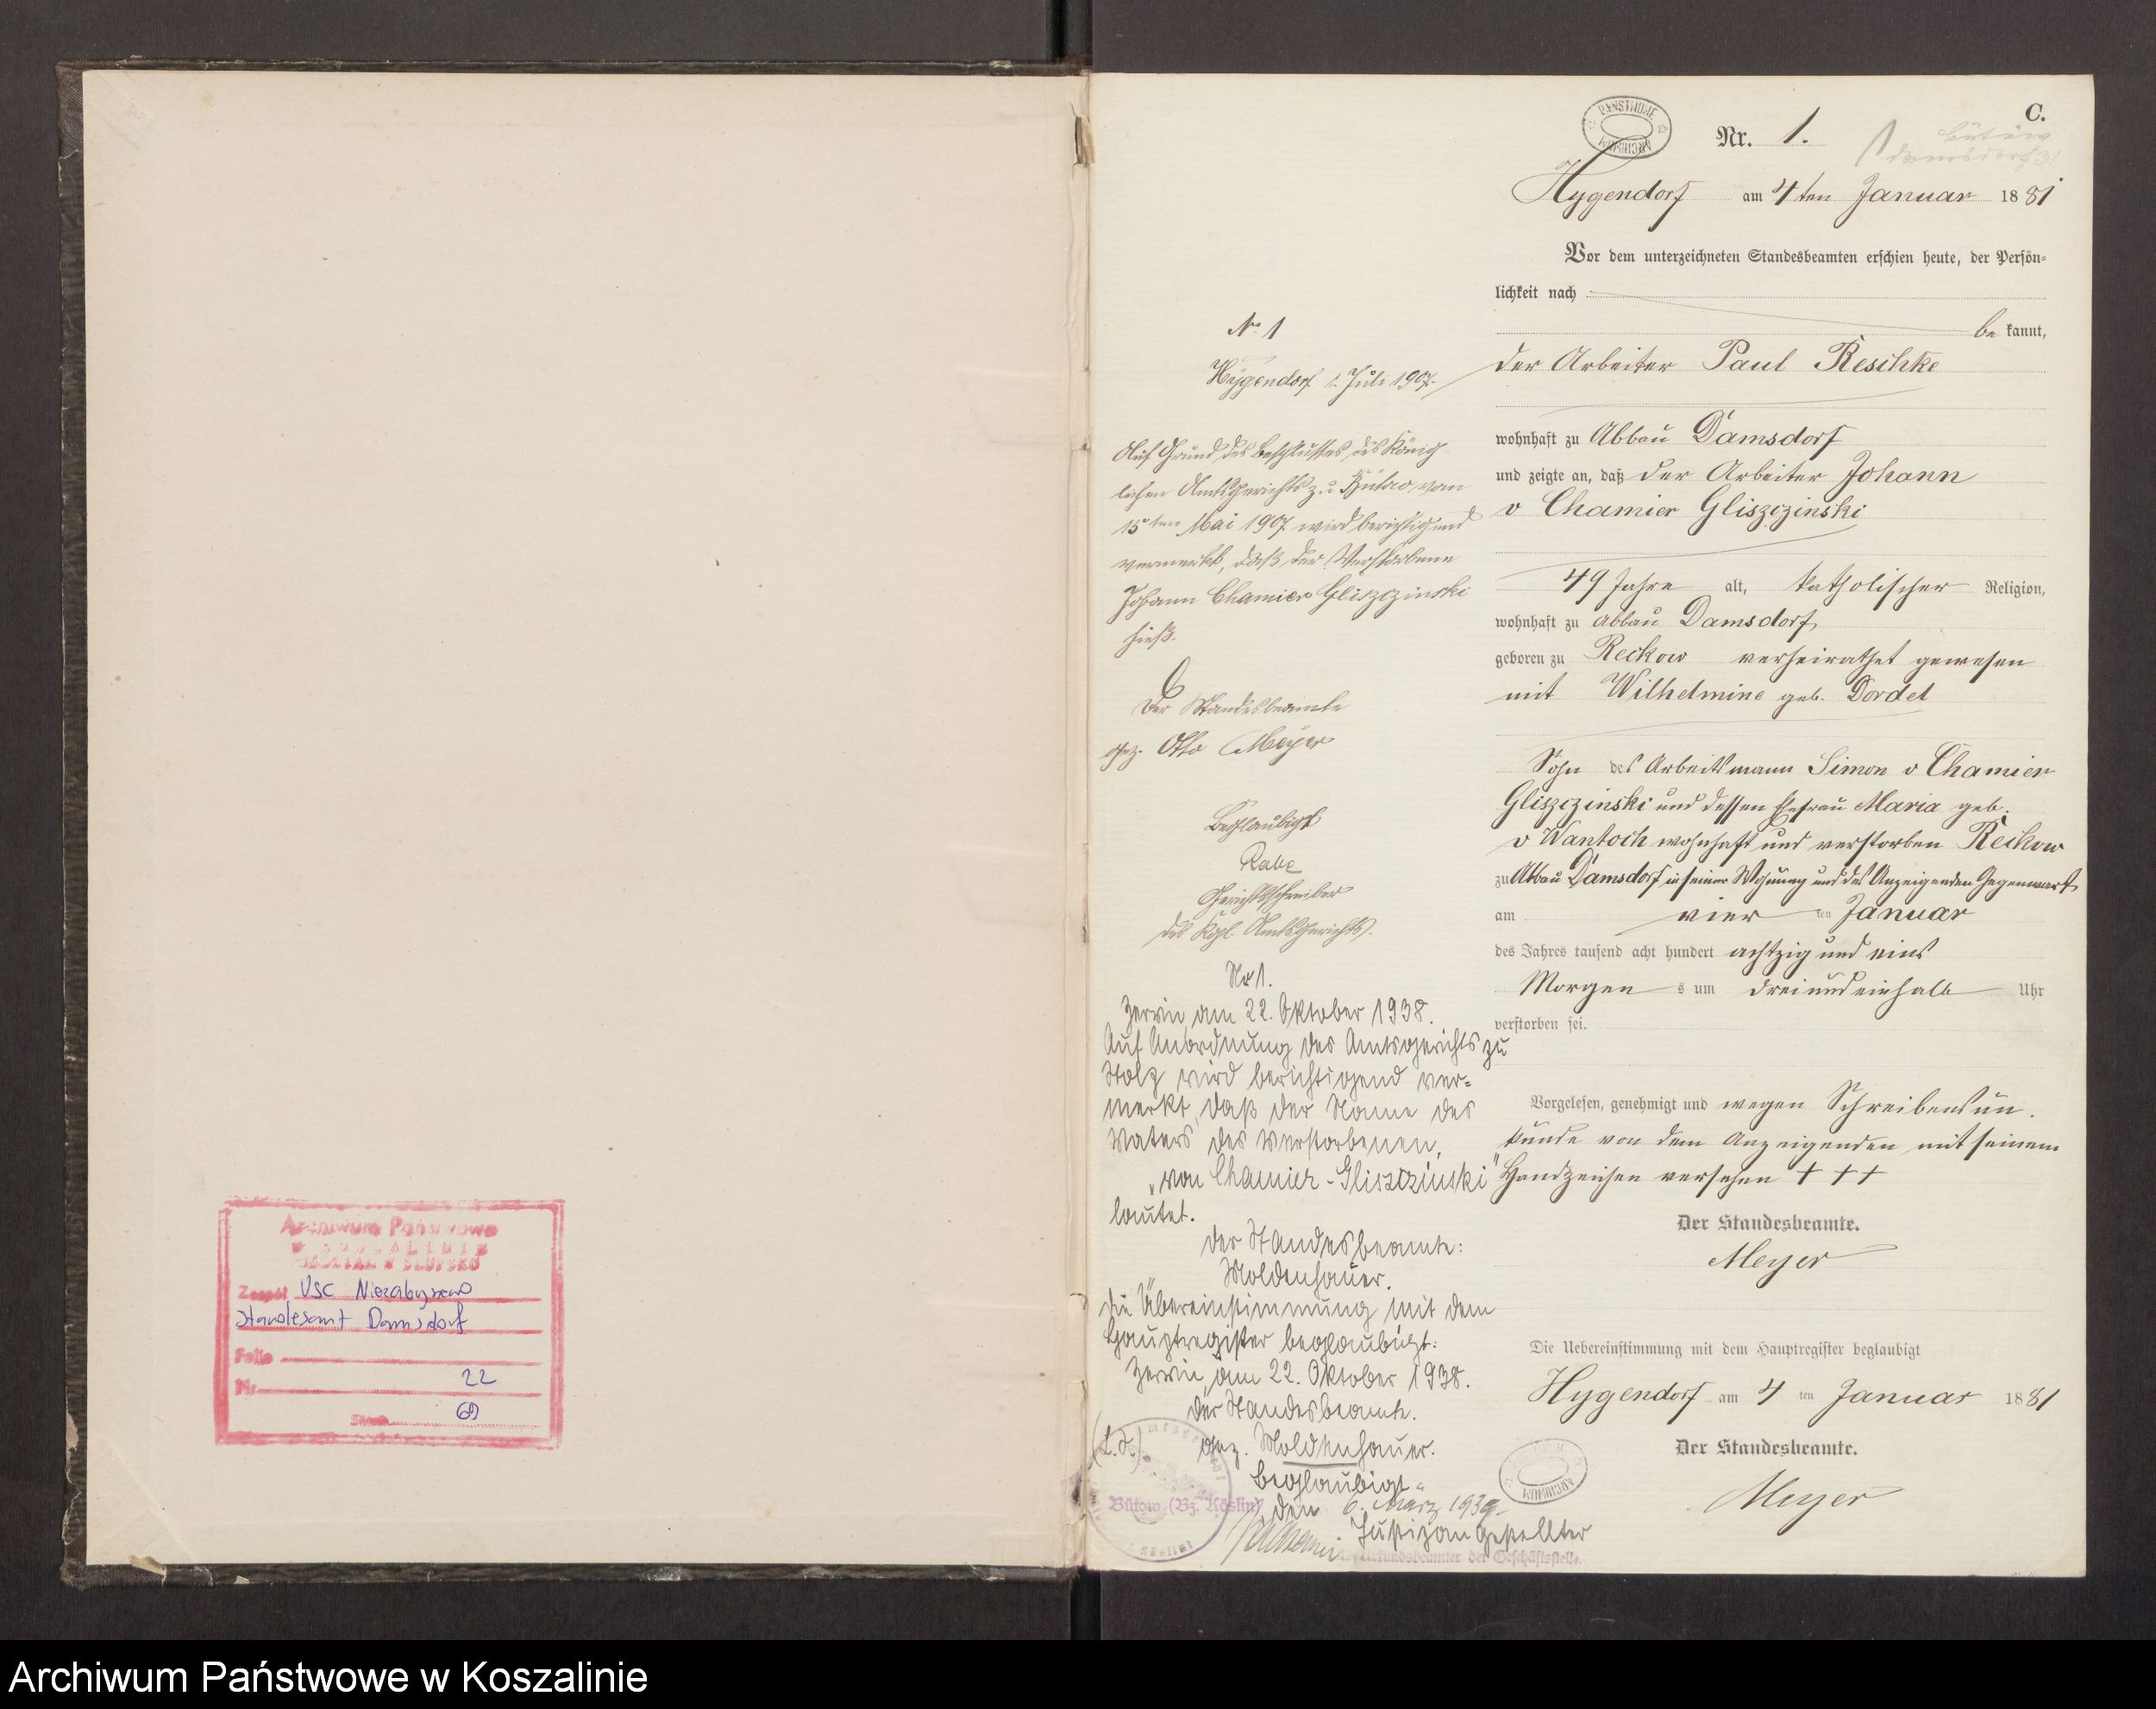 Archiwum Państwowe
W KOSZALINIE
ODDZIAŁ W SŁUPSKU
Zespół USC Niezabyszewo
Standesamt Damsdorf
Folio
Nr. 22
Stron 69
PAŃSTWOWE ARCHIWUM
C.
Nr. 1.
Bütow
Damsdorf
Hygendorf am 4 ten Januar 1881
Vor dem unterzeichneten Standesbeamten erschien heute, der Persön=
lichkeit nach
be kannt,
der Arbeiter Paul Reschke
wohnhaft zu Abbau Damsdorf
und zeigte an, daß der Arbeiter Johann
v Chamier Gliszczinski
49 Jahre alt, katholischer Religion,
wohnhaft zu Abbau Damsdorf,
geboren zu Reckow verheirathet gewesen
mit Wilhelmine geb. Dordel
Sohn des Arbeitsmann Simon v Chamier
Gliszczinski und dessen Ehefrau Maria geb.
v Wantoch wohnhaft und verstorben Reckow
zu Abbau Damsdorf in seiner Wohnung und des Anzeigenden Gegenwart
am vier ten Januar
des Jahres tausend acht hundert achtzig und eins
Morgen s um drei und einhalb Uhr
verstorben sei.
Vorgelesen, genehmigt und wegen Schreibensun.
kunde von dem Anzeigenden mit seinem
Handzeichen versehen + + +
Der Standesbeamte.
Meyer
Die Uebereinstimmung mit dem Hauptregister beglaubigt
Hygendorf am 4 ten Januar 1881
Der Standesbeamte.
Meyer
ARCHIWUM
No 1
Hygendorf 1. Juli 1907.
Auf Grund des Beschlusses des König
lichen Amtsgerichts zu Bütow vom
15ten Mai 1907 wird berichtigend
vermerkt, daß der Verstorbene
Johann Chamier Gliszczinski
hieß.
Der Standesbeamte
gez. Otto Meyer
Beglaubigt
Rabe
Gerichtsschreiber
des Kgl. Amtsgerichts.
No 1.
Zerrin, am 22. Oktober 1938.
Auf Anordnung des Amtsgerichts zu
Stolp wird berichtigend ver=
merkt, daß der Name des
Vaters des Verstorbenen,
"von Chamier-Gliszczinski"
lautet.
Der Standesbeamte:
Moldenhauer.
Die Übereinstimmung mit dem
Hauptregister beglaubigt:
Zerrin, am 22. Oktober 1938.
Der Standesbeamte.
(L.S.) gez. Moldenhauer.
Beglaubigt
Bütow (Bz. Köslin), den 6. März 1939.
Justizangestellter
Urkundsbeamter der Geschäftsstelle.
Archiwum Państwowe w Koszalinie